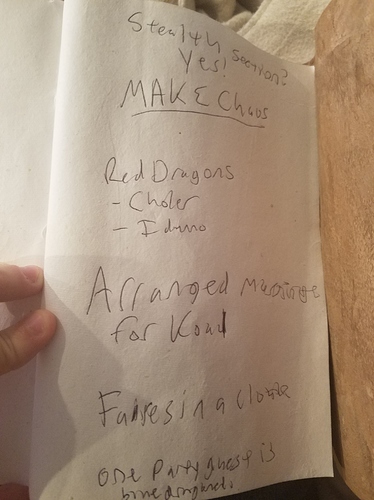 Stealth section?
Yes!
MAKE Chaos
Red Dragons
- Choler
- Iduno
Arranged marriage
for Koal
Fairies in a cloak
One Party guest is